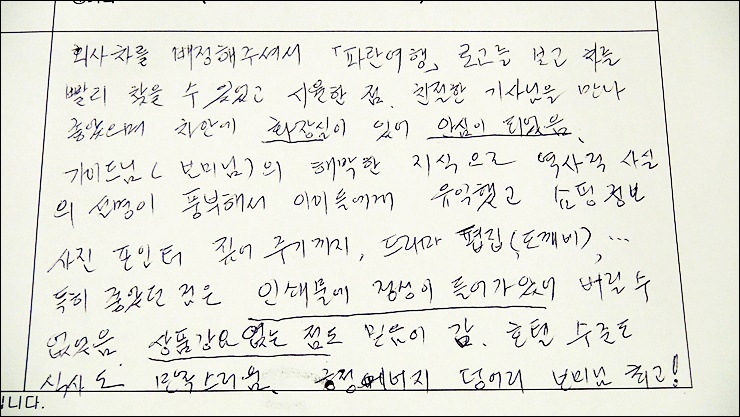 회사차를 배정해주셔서 「파란여행」 로고를 보고 차를
빨리 찾을 수 있었고 시원한 점. 친절한 기사님을 만나
좋았으며 차안에 화장실이 있어 안심이 되었음.
가이드님( 보미님)의 해박한 지식으로 역사적 사실
의 설명이 풍부해서 아이들에게 유익했고 쇼핑정보
사진 포인터 짚어 주기까지, 드라마 편집(도깨비), …
특히 좋았던 것은 인쇄물에 정성이 들어가있어 버릴 수
없었음. 상품강요 없는 점도 믿음이 감. 호텔 수준도
식사도 만족스러움. 긍정에너지 덩어리 보미님 최고!
니다.